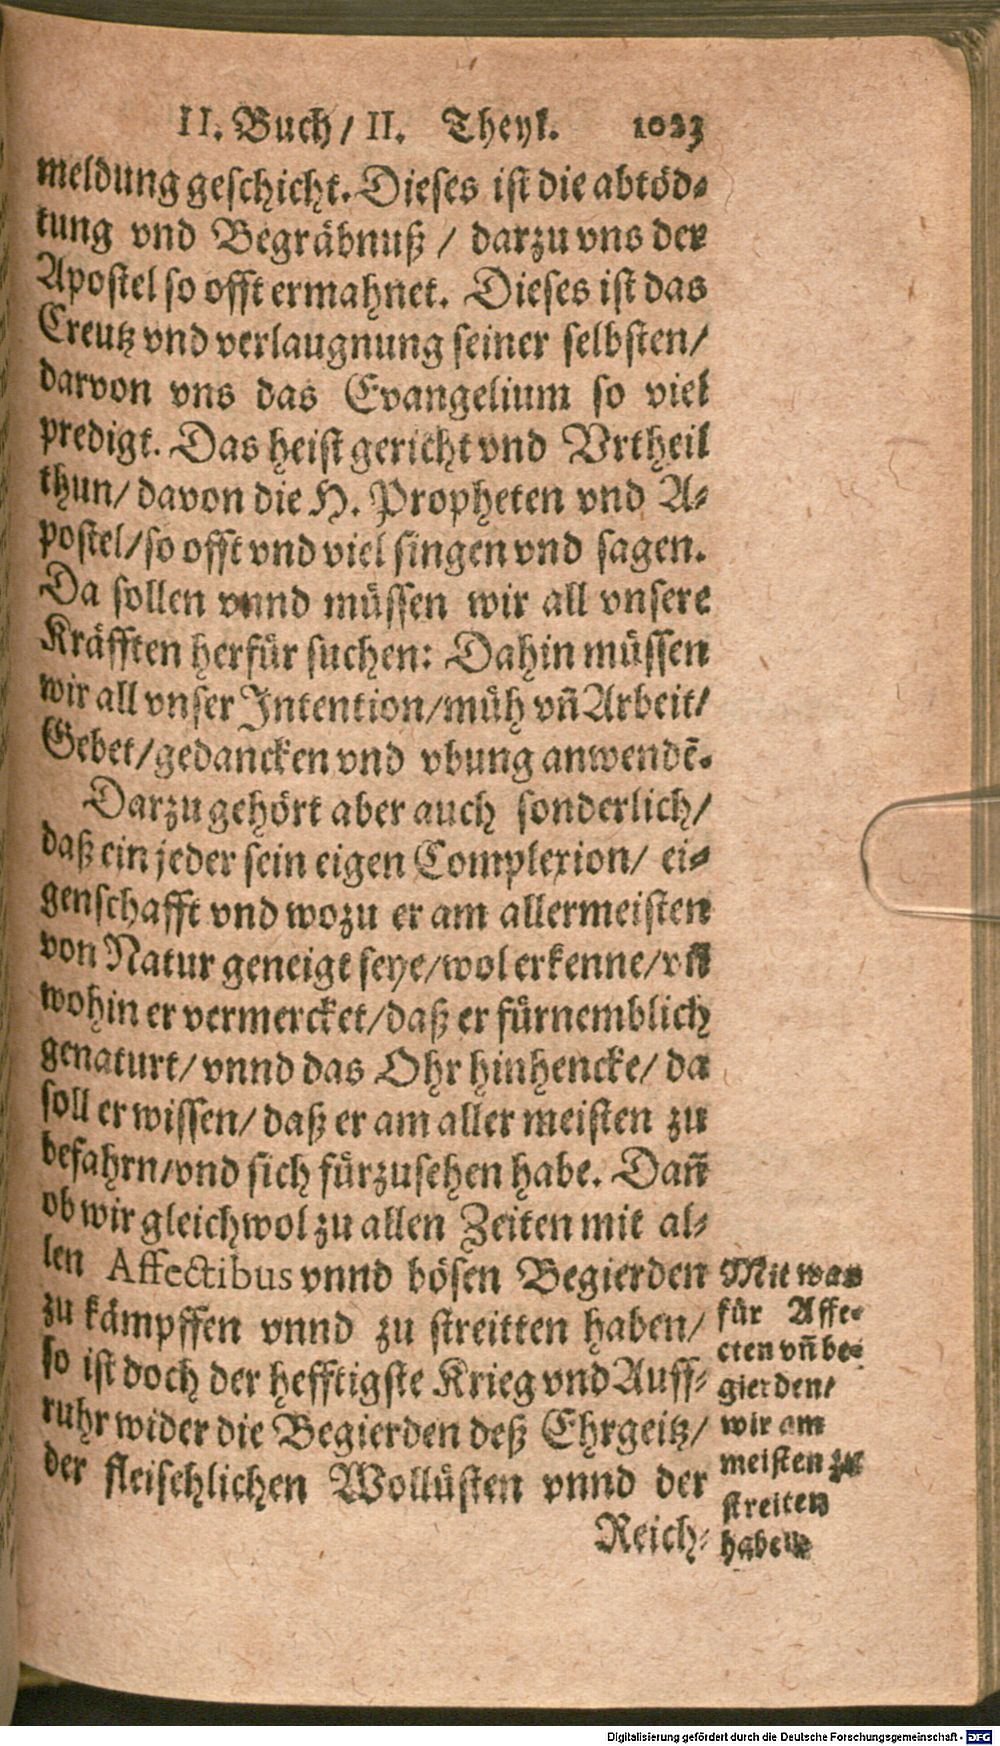 II. Buch/ II. Theyl. 1023
meldung geschicht. Dieses ist die abtöd⸗
tung vnd Begräbnuß / darzu vns der
Apostel so offt ermahnet. Dieses ist das
Creutz vnd verlaugnung seiner selbsten/
darvon vns das Evangelium so viel
predigt. Das heist gericht vnd Vrtheil
thun/ davon die H. Propheten vnd A⸗
postel/ so offt vnd viel singen vnd sagen.
Da sollen vnnd müssen wir all vnsere
Kräfften herfür suchen: Dahin müssen
wir all vnser Intention/ müh vñ Arbeit/
Gebet/ gedancken vnd vbung anwendẽ.
Darzu gehört aber auch sonderlich/
daß ein jeder sein eigen Complexion/ ei⸗
genschafft vnd wozu er am allermeisten
von Natur geneigt seye/ wol erkenne/ vñ
wohin er vermercket/ daß er fürnemblich
genaturt/ vnnd das Ohr hinhencke/ da
soll er wissen/ daß er am aller meisten zu
befahrn/ vnd sich fürzusehen habe. Dañ
ob wir gleichwol zu allen Zeiten mit al⸗
len Affectibus vnnd bösen Begierden
zu kämpffen vnnd zu streitten haben/
so ist doch der hefftigste Krieg vnd Auff⸗
ruhr wider die Begierden deß Ehrgeitz/
der fleischlichen Wollüsten vnnd der
Reich⸗
Mit was
für Affe⸗
cten vñ be⸗
gierden/
wir am
meisten zu
streiten
haben
Digitalisierung gefördert durch die Deutsche Forschungsgemeinschaft - DFG